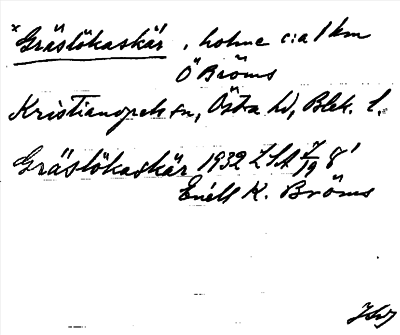 ×Gräslökaskär, holme c:a 1 km
Ö Bröms
Kristianopels sn, Östra hd, Blek. l.
Gräslökaskär 1932 LSA 7/19 8'
Enell K. Bröms